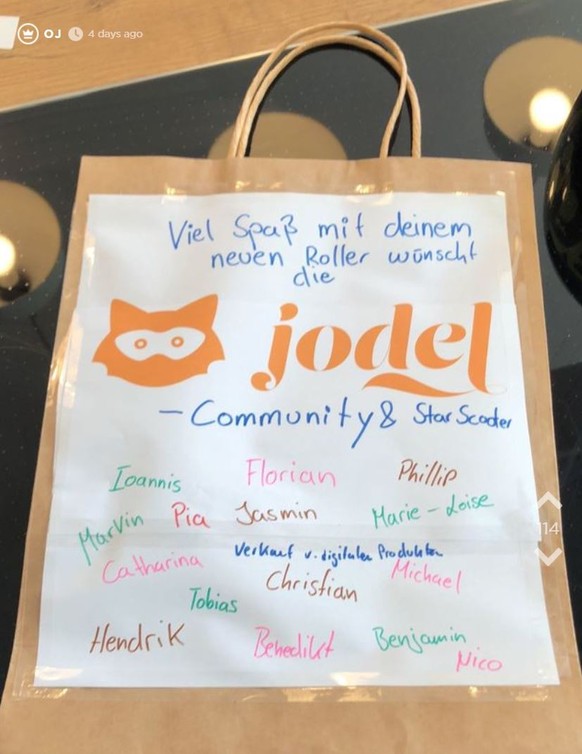 OJ 4 days ago
Viel Spaß mit deinem
neuen Roller wünscht
die
jodel
- Community & Star Scooter
Ioannis Florian Phillip
Marvin Pia Jasmin Marie-Loise
Verkauf v. digitalen Produkten
Catharina Christian Michael
Tobias
Hendrik Benedikt Benjamin
Nico
114